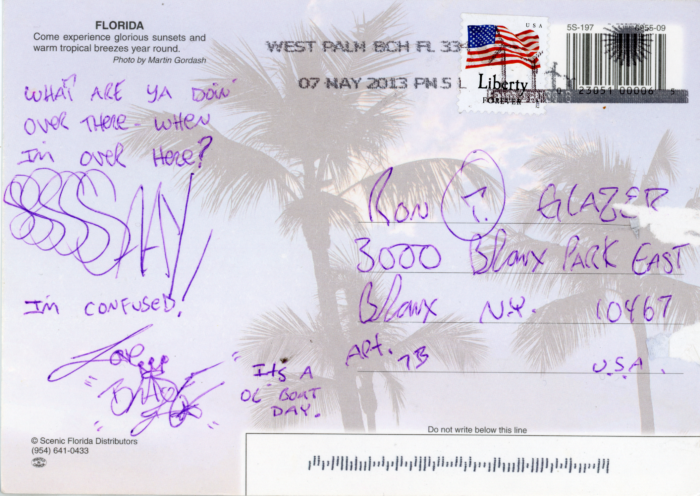 FLORIDA
Come experience glorious sunsets and
warm tropical breezes year round.
Photo by Martin Gordash
WEST PALM BCH FL 334
07 MAY 2013 PM 5 L
USA
Liberty
FOREVER
5S-197
55-09
23051 00006 5
WHAT ARE YA DOIN'
OVER THERE - WHEN
I'm OVER HERE?
SSSSSAAY,
I'm CONFUSED!
Love
"BRAD"
"It's A
OL' BOAT
DAY."
RON T. GLAZER
3000 BRONX PARK EAST
BRONX N.Y. 10467
APT. 7B
U.S.A.
Do not write below this line
© Scenic Florida Distributors
(954) 641-0433